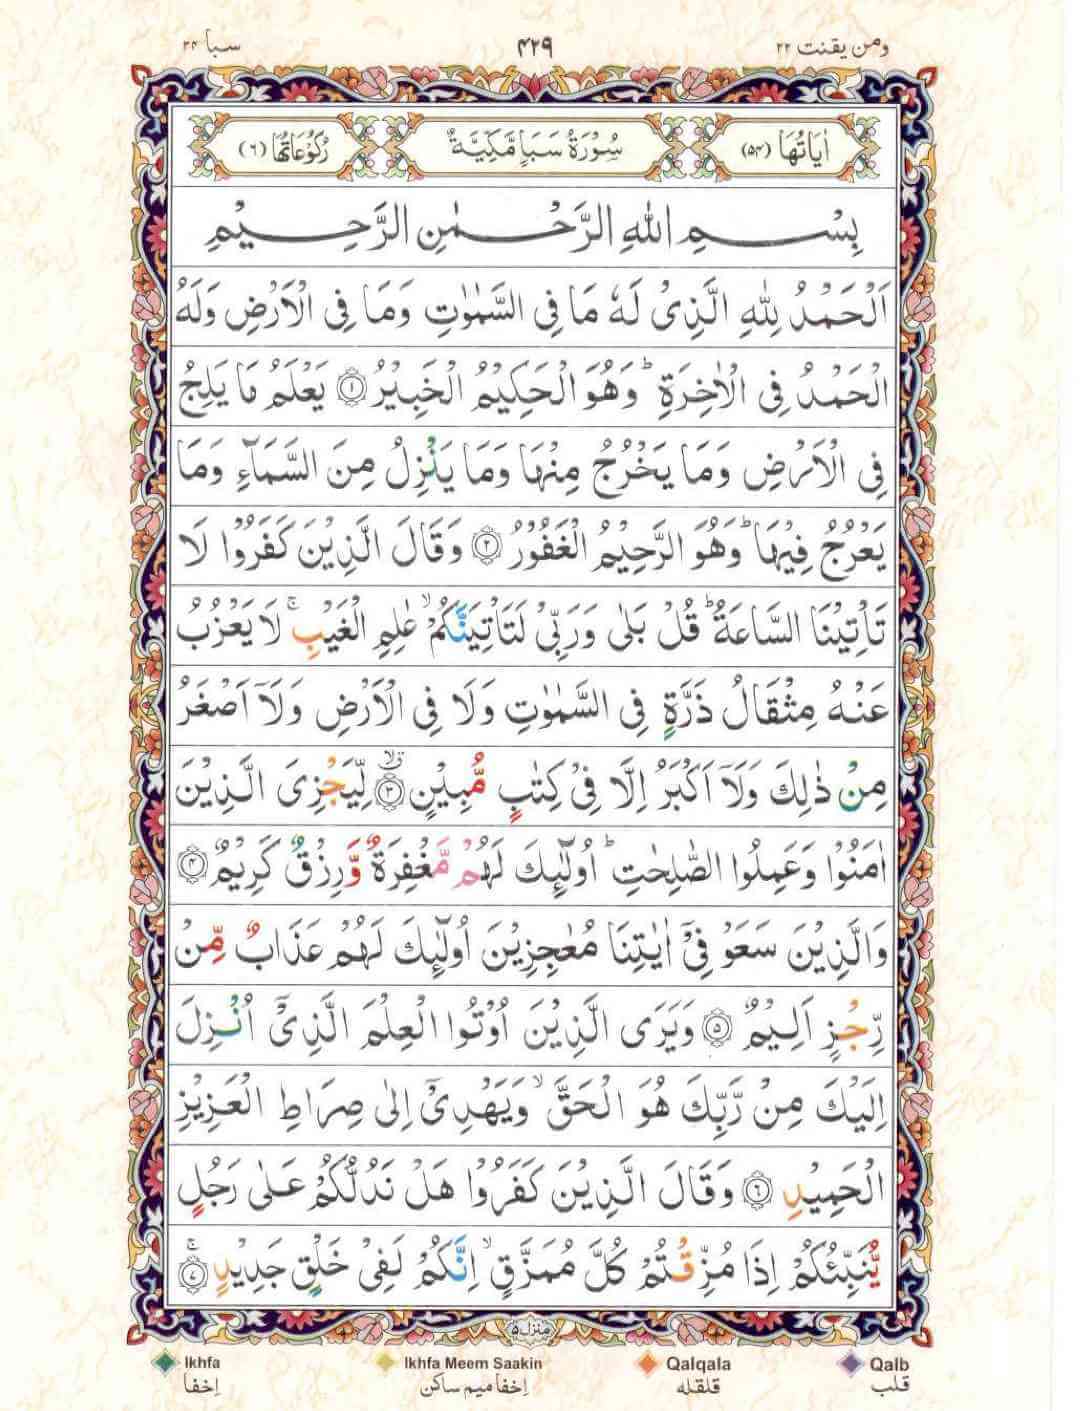 ومن يقنت ٢٢ ۴۲۹ سبا ٣۴
اٰيَاتُهَا (۵۴) سُوْرَةُ سَبَاٍ مَّكِّيَّةٌ رُكُوْعَاتُهَا (٦)
بِسْمِ اللّٰهِ الرَّحْمٰنِ الرَّحِيْمِ
اَلْحَمْدُ لِلّٰهِ الَّذِیْ لَهٗ مَا فِی السَّمٰوٰتِ وَمَا فِی الْاَرْضِ وَلَهُ
الْحَمْدُ فِی الْاٰخِرَةِ ؕ وَهُوَ الْحَكِيْمُ الْخَبِيْرُ ﴿۱﴾ يَعْلَمُ مَا يَلِجُ
فِی الْاَرْضِ وَمَا يَخْرُجُ مِنْهَا وَمَا يَنْزِلُ مِنَ السَّمَآءِ وَمَا
يَعْرُجُ فِيْهَا ؕ وَهُوَ الرَّحِيْمُ الْغَفُوْرُ ﴿۲﴾ وَقَالَ الَّذِيْنَ كَفَرُوْا لَا
تَاْتِيْنَا السَّاعَةُ ؕ قُلْ بَلٰی وَرَبِّیْ لَتَاْتِيَنَّكُمْ ۙ عٰلِمِ الْغَيْبِ ۚ لَا يَعْزُبُ
عَنْهُ مِثْقَالُ ذَرَّةٍ فِی السَّمٰوٰتِ وَلَا فِی الْاَرْضِ وَلَاۤ اَصْغَرُ
مِنْ ذٰلِكَ وَلَاۤ اَكْبَرُ اِلَّا فِیْ كِتٰبٍ مُّبِيْنٍ ﴿۳﴾ لِّيَجْزِیَ الَّذِيْنَ
اٰمَنُوْا وَعَمِلُوا الصّٰلِحٰتِ ؕ اُولٰٓئِكَ لَهُمْ مَّغْفِرَةٌ وَّرِزْقٌ كَرِيْمٌ ﴿۴﴾
وَالَّذِيْنَ سَعَوْ فِیْۤ اٰيٰتِنَا مُعٰجِزِيْنَ اُولٰٓئِكَ لَهُمْ عَذَابٌ مِّنْ
رِّجْزٍ اَلِيْمٌ ﴿۵﴾ وَيَرَی الَّذِيْنَ اُوْتُوا الْعِلْمَ الَّذِیْۤ اُنْزِلَ
اِلَيْكَ مِنْ رَّبِّكَ هُوَ الْحَقَّ ۙ وَيَهْدِیْۤ اِلٰی صِرَاطِ الْعَزِيْزِ
الْحَمِيْدِ ﴿۶﴾ وَقَالَ الَّذِيْنَ كَفَرُوْا هَلْ نَدُلُّكُمْ عَلٰی رَجُلٍ
يُّنَبِّئُكُمْ اِذَا مُزِّقْتُمْ كُلَّ مُمَزَّقٍ ۙ اِنَّكُمْ لَفِیْ خَلْقٍ جَدِيْدٍ ۚ ﴿۷﴾
منزل ۵
Ikhfa Ikhfa Meem Saakin Qalqala Qalb
اِخفا اِخفا میم ساکن قلقله قلب